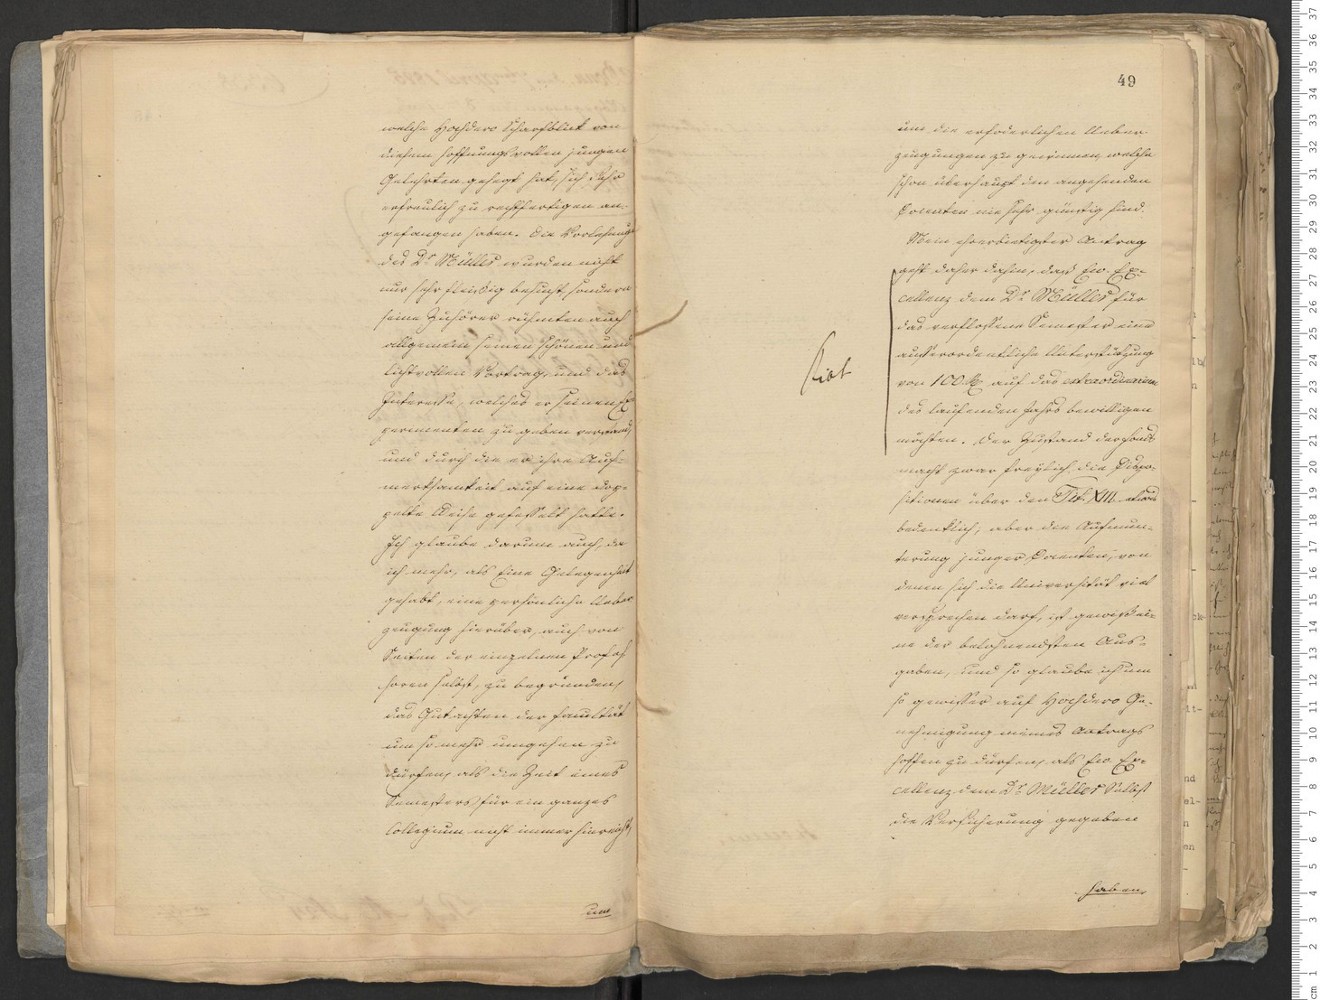 welche Hochdero Scharfblick von
diesem hoffnungsvollen jungen
Gelehrten gehegt hat, sich sehr
erfreulich zu rechtfertigen an-
gefangen haben. Die Vorlesungen
des Dr. Müller wurden nicht
nur sehr fleißig besucht, sondern
seine Zuhörer rühmten auch
allgemein seinen schönen und
lichtvollen Vortrag, und das
Interesse, welches er seinen Ex-
perimenten zu geben verstand,
und durch die er ihre Auf-
merksamkeit auf eine dop-
pelte Weise gefesselt hatte.
Ich glaube darum auch, da
ich mehr, als Eine Gelegenheit
gehabt, eine persönliche Ueber-
zeugung hierüber, auch von
Seiten der einzelnen Profes-
soren selbst, zu begründen,
das Gutachten der Facultät
um so mehr umgehen zu
dürfen, als die Zeit eines
Semesters für ein ganzes
Collegium nicht immer hinreicht,
um
49
um die erforderlichen Ueber-
zeugungen zu gewinnen, welche
schon überhaupt den angehenden
Docenten nie sehr günstig sind.
Mein ehrerbietigster Antrag
geht daher dahin, daß Ew. Ex-
cellenz dem Dr. Müller für
das verflossene Semester eine
außerordentliche Unterstützung
von 100 auf das extraordinarium
des laufenden Jahrs bewilligen
möchten. Der Zustand der Fonds
macht zwar freylich die Dispo-
sitionen über den Tit. XIII. etwas
bedenklich, aber die Aufmun-
terung junger Docenten, von
denen sich die Universität viel
versprechen darf, ist gewiß ei-
ne der belohnendsten Aus-
gaben, und so glaube ich um
so gewisser auf Hochdero Ge-
nehmigung meines Antrags
hoffen zu dürfen, als Ew. Ex-
cellenz dem Dr. Müller selbst
die Versicherung gegeben
haben,
fiat